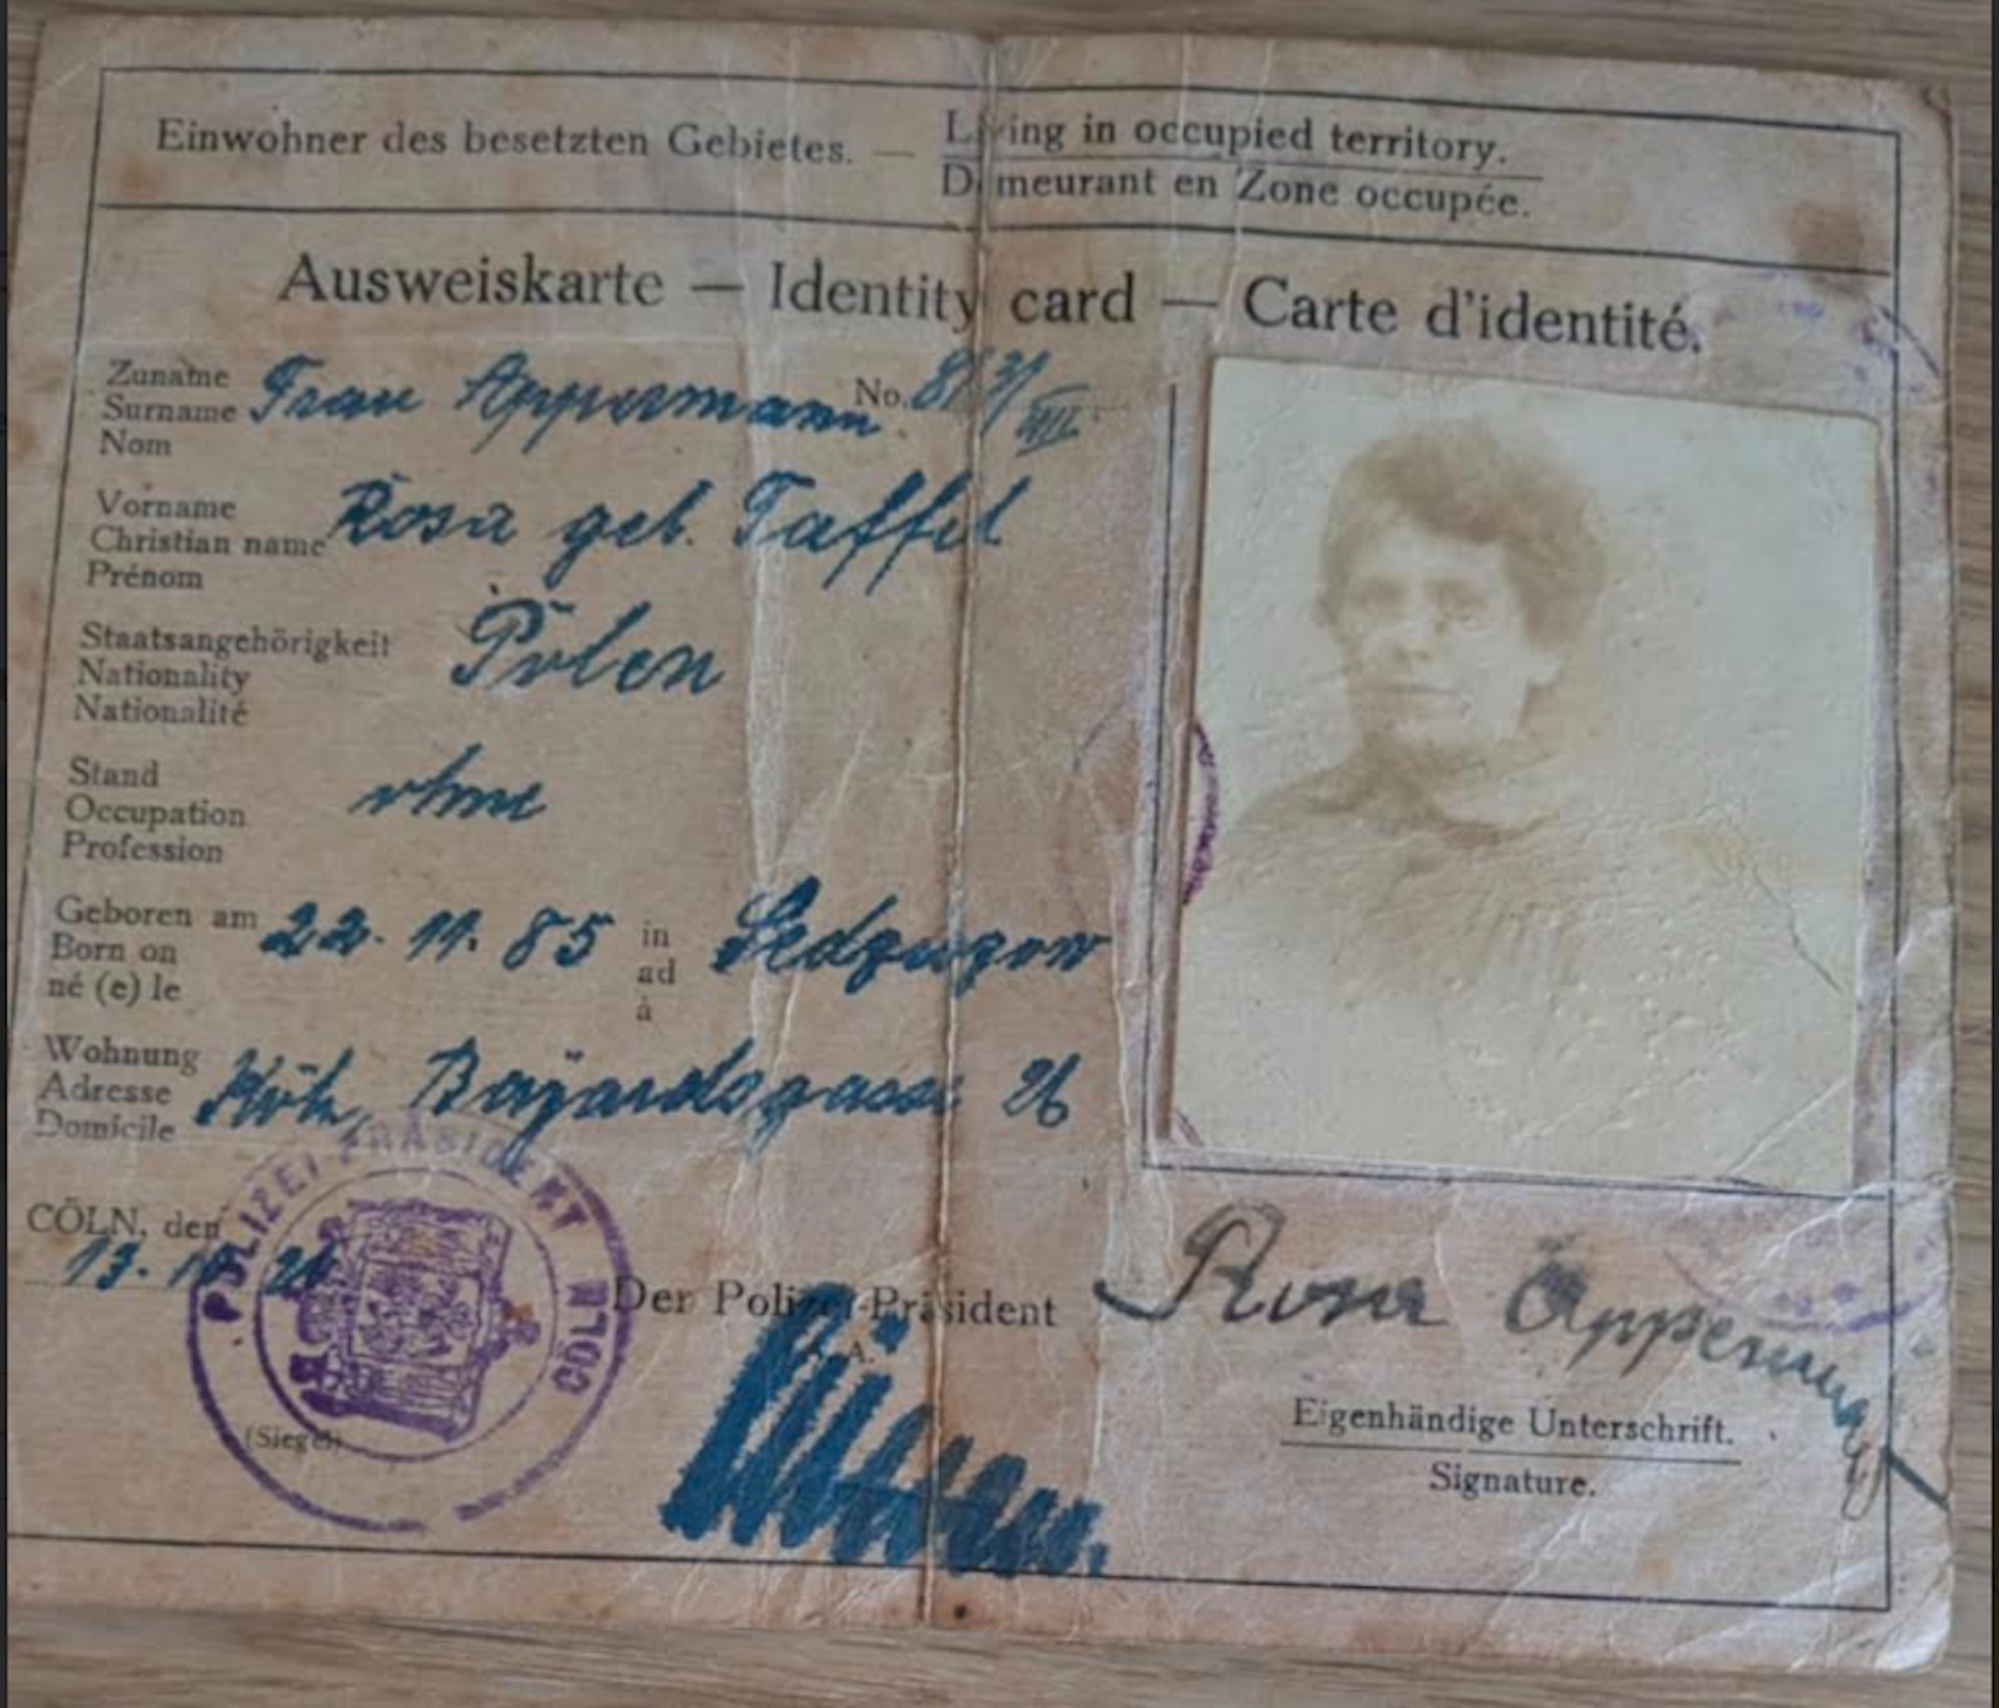 Einwohner des besetzten Gebietes. — Living in occupied territory.
Demeurant en Zone occupée.
Ausweiskarte — Identity card — Carte d'identité.
Zuname
Surname Frau Appermann No.
Nom
Vorname
Christian name Rosa geb. Taffel
Prénom
Staatsangehörigkeit
Nationality Polen
Nationalité
Stand
Occupation ohne
Profession
Geboren am 22. 11. 85 in
Born on ad
né (e) le à
Wohnung
Adresse Köln, Bayardsgasse 26
Domicile
POLIZEI PRÄSIDENT CÖLN
CÖLN, den
13. 10. 26
Der Polizei-Präsident
(Siegel)
Rosa Appermann
Eigenhändige Unterschrift.
Signature.